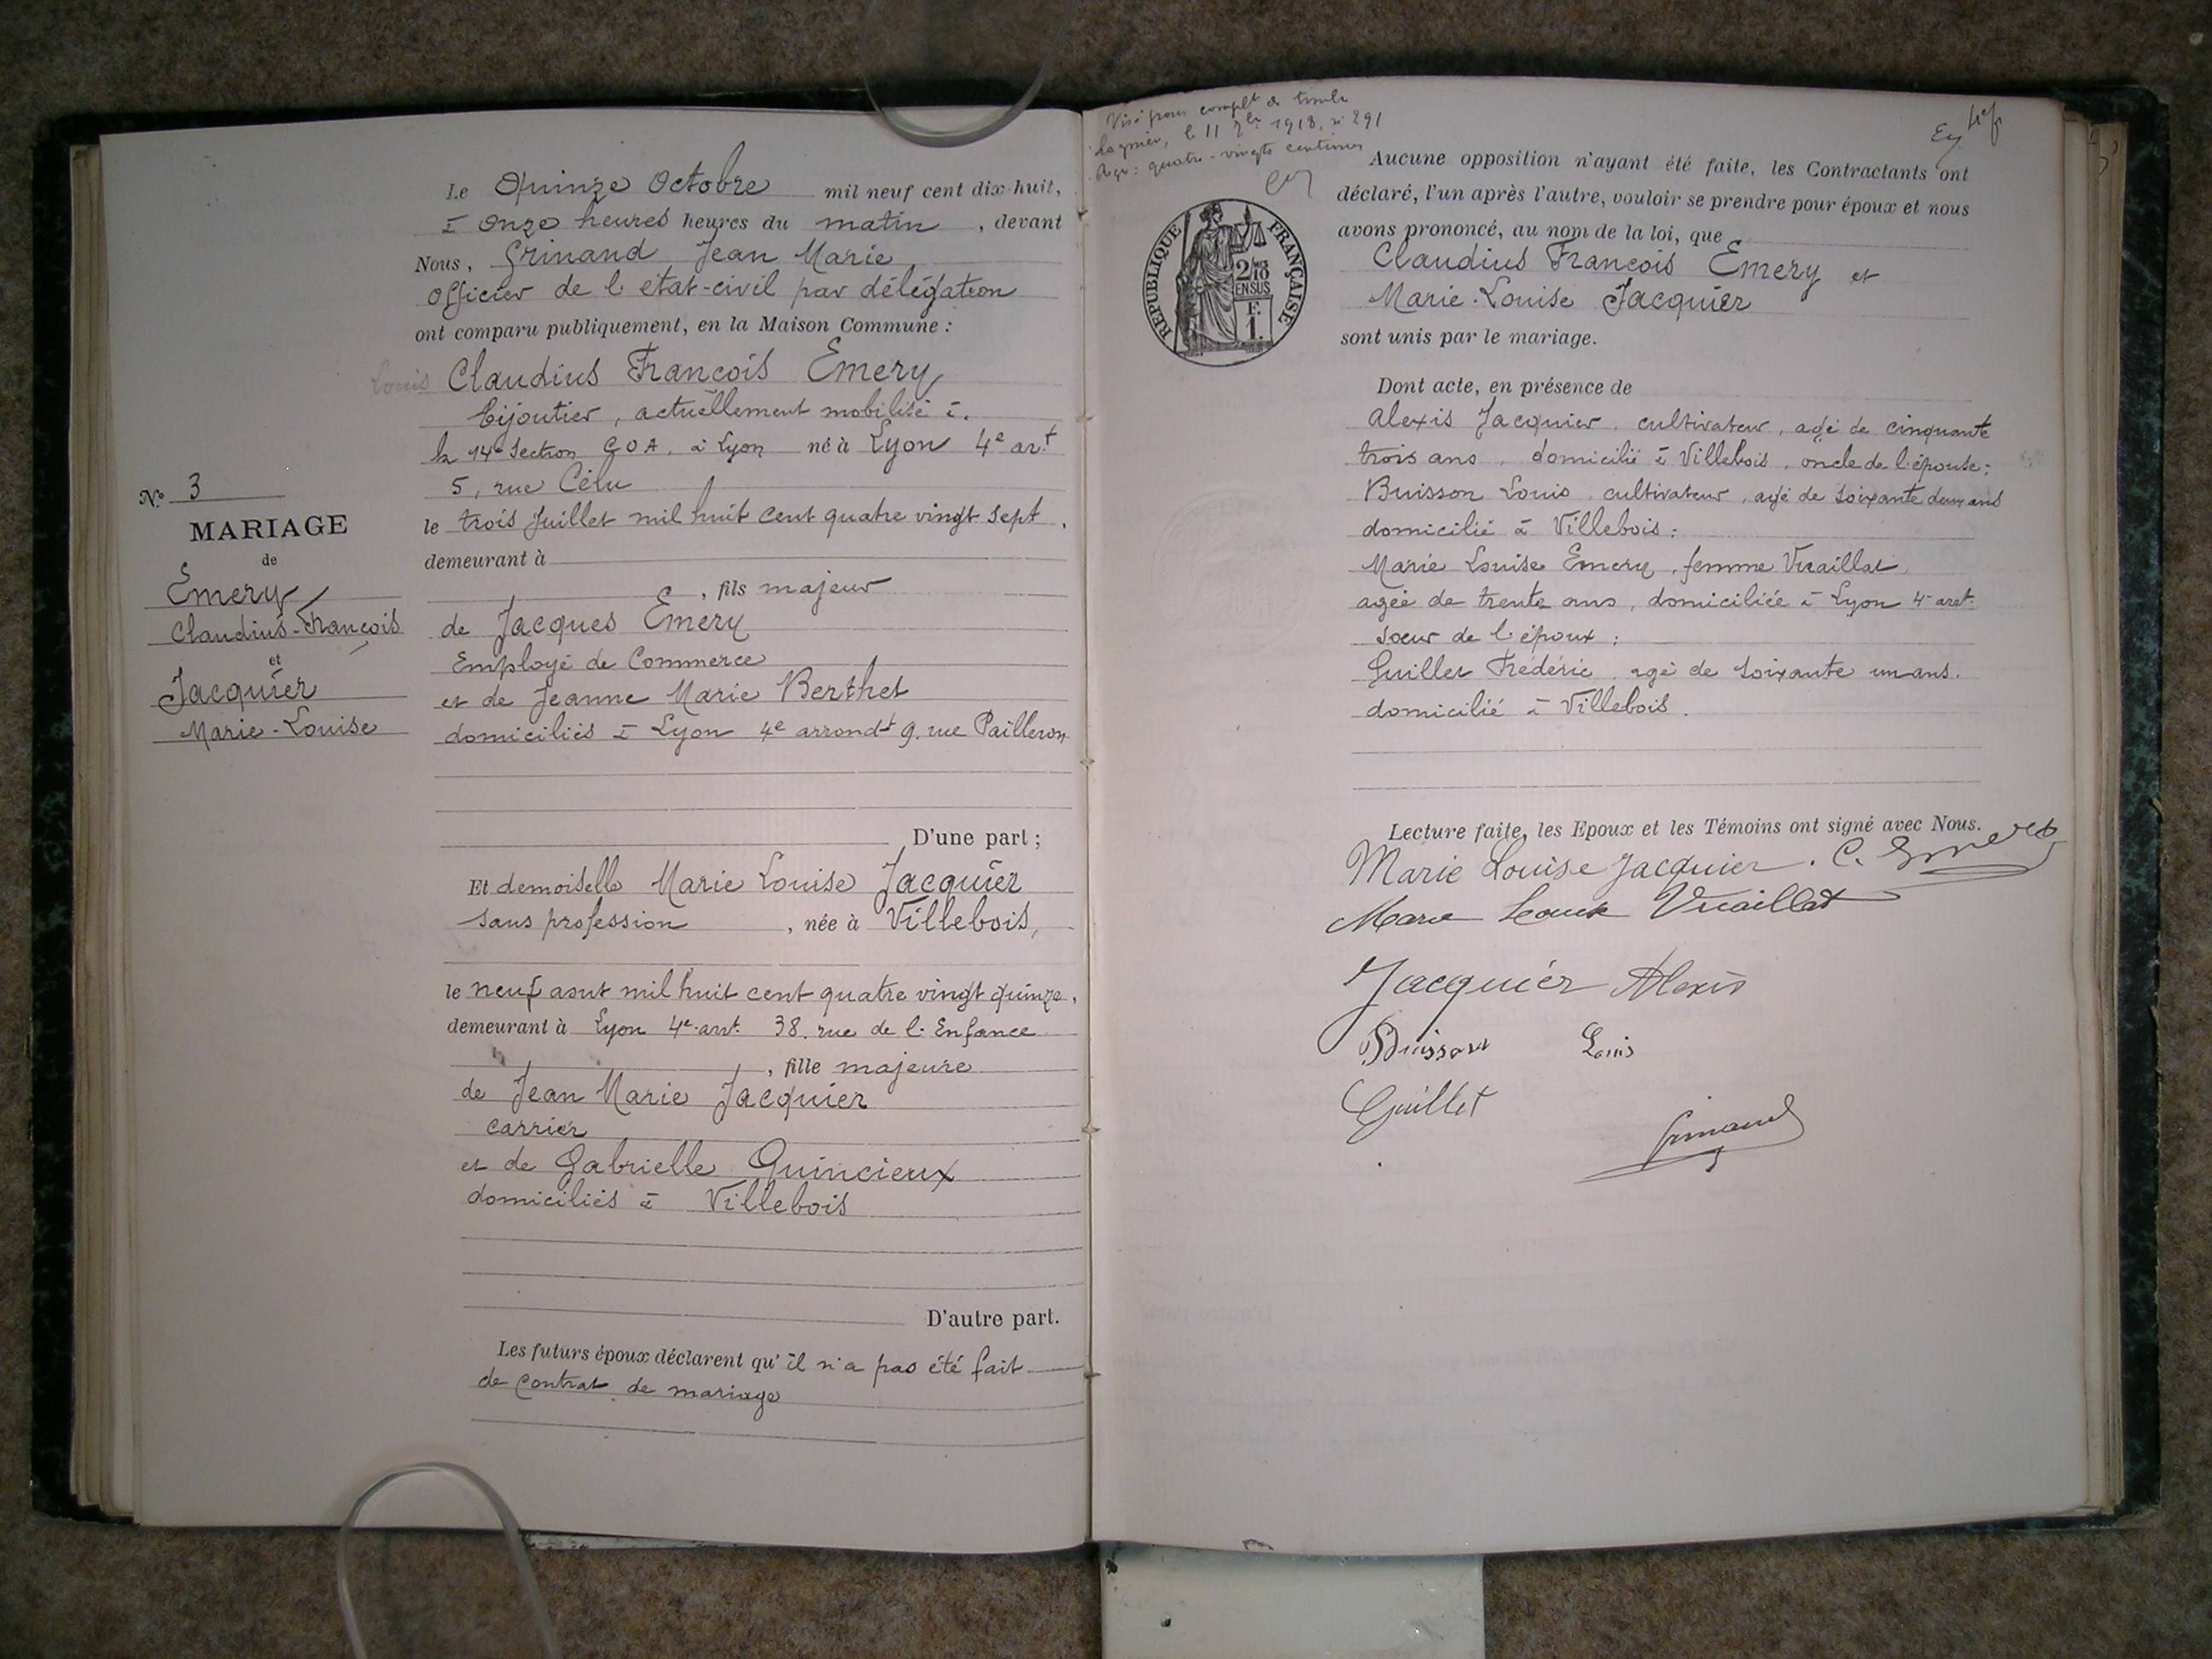 Le Quinze Octobre mil neuf cent dix-huit,
à Onze heures heures du matin, devant
Nous, Grinand Jean Marie
Officier de l'état-civil par délégation
ont comparu publiquement, en la Maison Commune :
Louis Claudius François Emery
bijoutier, actuellement mobilisé à
la 14e Section COA, à Lyon né à Lyon 4e art
5, rue Célu
le trois Juillet mil huit cent quatre vingt sept,
demeurant à
, fils majeur
de Jacques Emery
Employé de Commerce
et de Jeanne Marie Berthet
domiciliés à Lyon 4e arrondt 9. rue Pailleron
D'une part ;
Et demoiselle Marie Louise Jacquier
sans profession, née à Villebois,
le neuf aout mil huit cent quatre vingt quinze,
demeurant à Lyon 4e arrt. 38. rue de l'Enfance
, fille majeure
de Jean Marie Jacquier
carrier
et de Gabrielle Quincieux
domiciliés à Villebois
D'autre part.
Les futurs époux déclarent qu'il n'a pas été fait
de contrat de mariage
No 3
MARIAGE
de
Emery
Claudius-François
et
Jacquier
Marie-Louise
Visé pour complt de timbre
Lagnieu, le 11 1918, n° 291
quatre-vingts centimes
RÉPUBLIQUE FRANÇAISE
2/10
EN SUS
F.
1.
Aucune opposition n'ayant été faite, les Contractants ont
déclaré, l'un après l'autre, vouloir se prendre pour époux et nous
avons prononcé, au nom de la loi, que
Claudius François Emery et
Marie-Louise Jacquier
sont unis par le mariage.
Dont acte, en présence de
Alexis Jacquier, cultivateur, agé de cinquante
trois ans, domicilié à Villebois, oncle de l'épouse ;
Buisson Louis, cultivateur, agé de soixante deux ans
domicilié à Villebois ;
Marie Louise Emery, femme Vuaillat,
agée de trente ans, domiciliée à Lyon 4e arrt.
soeur de l'époux ;
Guillet Frédéric, agé de soixante un ans.
domicilié à Villebois.
Lecture faite, les Epoux et les Témoins ont signé avec Nous.
Marie Louise Jacquier. C. Emery
Marie Louise Vuaillat
Jacquier Alexis
Buisson Louis
Guillet
Grinand